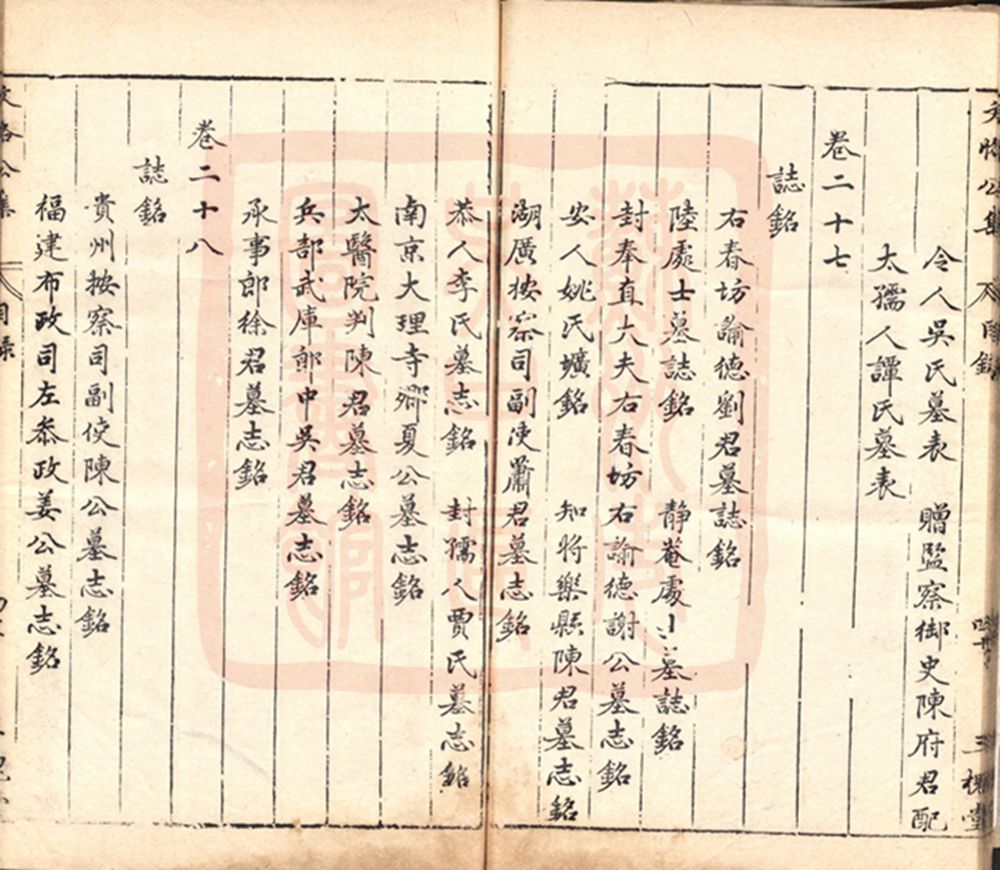 令人吳氏墓表　贈監察御史陳府君配
太孺人譚氏墓表
卷二十七
誌銘
右春坊諭德劉君墓誌銘
陸處士墓誌銘　靜菴處士墓誌銘
封奉直大夫右春坊右諭德謝公墓志銘
安人姚氏壙銘　知將樂縣陳君墓志銘
湖廣按察司副使蕭君墓志銘
恭人李氏墓志銘　封孺人賈氏墓志銘
南京大理寺卿夏公墓志銘
太醫院判陳君墓志銘
兵部武庫郎中吳君墓志銘
承事郎徐君墓志銘
卷二十八
誌銘
貴州按察司副使陳公墓志銘
福建布政司左叅政姜公墓志銘